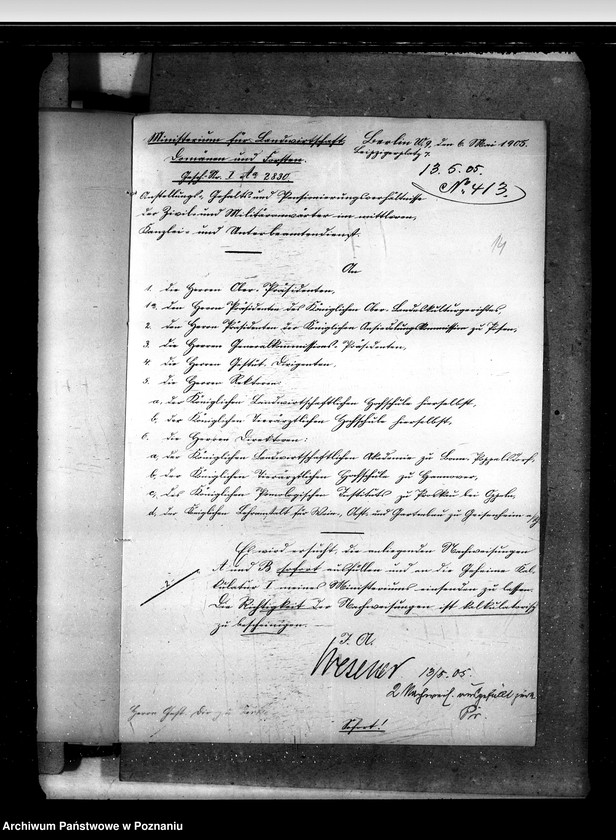 Ministerium für Landwirtschaft
Domänen und Forsten.
Gesch. Nr. I Aa 2830.
Berlin W9, den 6. Mai 1905.
Leipzigerplatz 7.
13.5.05.
No. 413.
Anstellungs-, Gehalts- und Pensionierungsverhältnisse
der Zivil- und Militäranwärter im mittleren,
Kanzlei- und Unterbeamtendienst.
14
An
1. die Herren Ober-Präsidenten,
1a. den Herrn Präsidenten des Königlichen Ober-Landeskulturgerichtes,
2. den Herrn Präsidenten der Königlichen Ansiedelungskommission zu Posen,
3. die Herren Generalkommissions-Präsidenten,
4. die Herren Gestüt-Dirigenten,
5. die Herren Rektoren
a, der Königlichen Landwirtschaftlichen Hochschule hierselbst,
b, der Königlichen Tierärztlichen Hochschule hierselbst,
6. die Herren Direktoren:
a, der Königlichen Landwirtschaftlichen Akademie zu Bonn-Poppelsdorf,
b, der Königlichen Tierärztlichen Hochschule zu Hannover,
c, des Königlichen Pomologischen Instituts zu Proskau bei Oppeln,
d, der Königlichen Lehranstalt für Wein-, Obst- und Gartenbau zu Geisenheim a/Rh
Es wird ersucht, die anliegenden Nachweisungen
A und B sofort ausfüllen und an die Geheime Kal-
kulatur I meines Ministeriums einsenden zu lassen.
Die Richtigkeit der Nachweisungen ist kalkulatorisch
zu bescheinigen.
2
J. A.
Wesener
13/5. 05.
2 Nachweis. ausgefüllt
Herrn Gest. Dir. zu
Sofort!
Archiwum Państwowe w Poznaniu